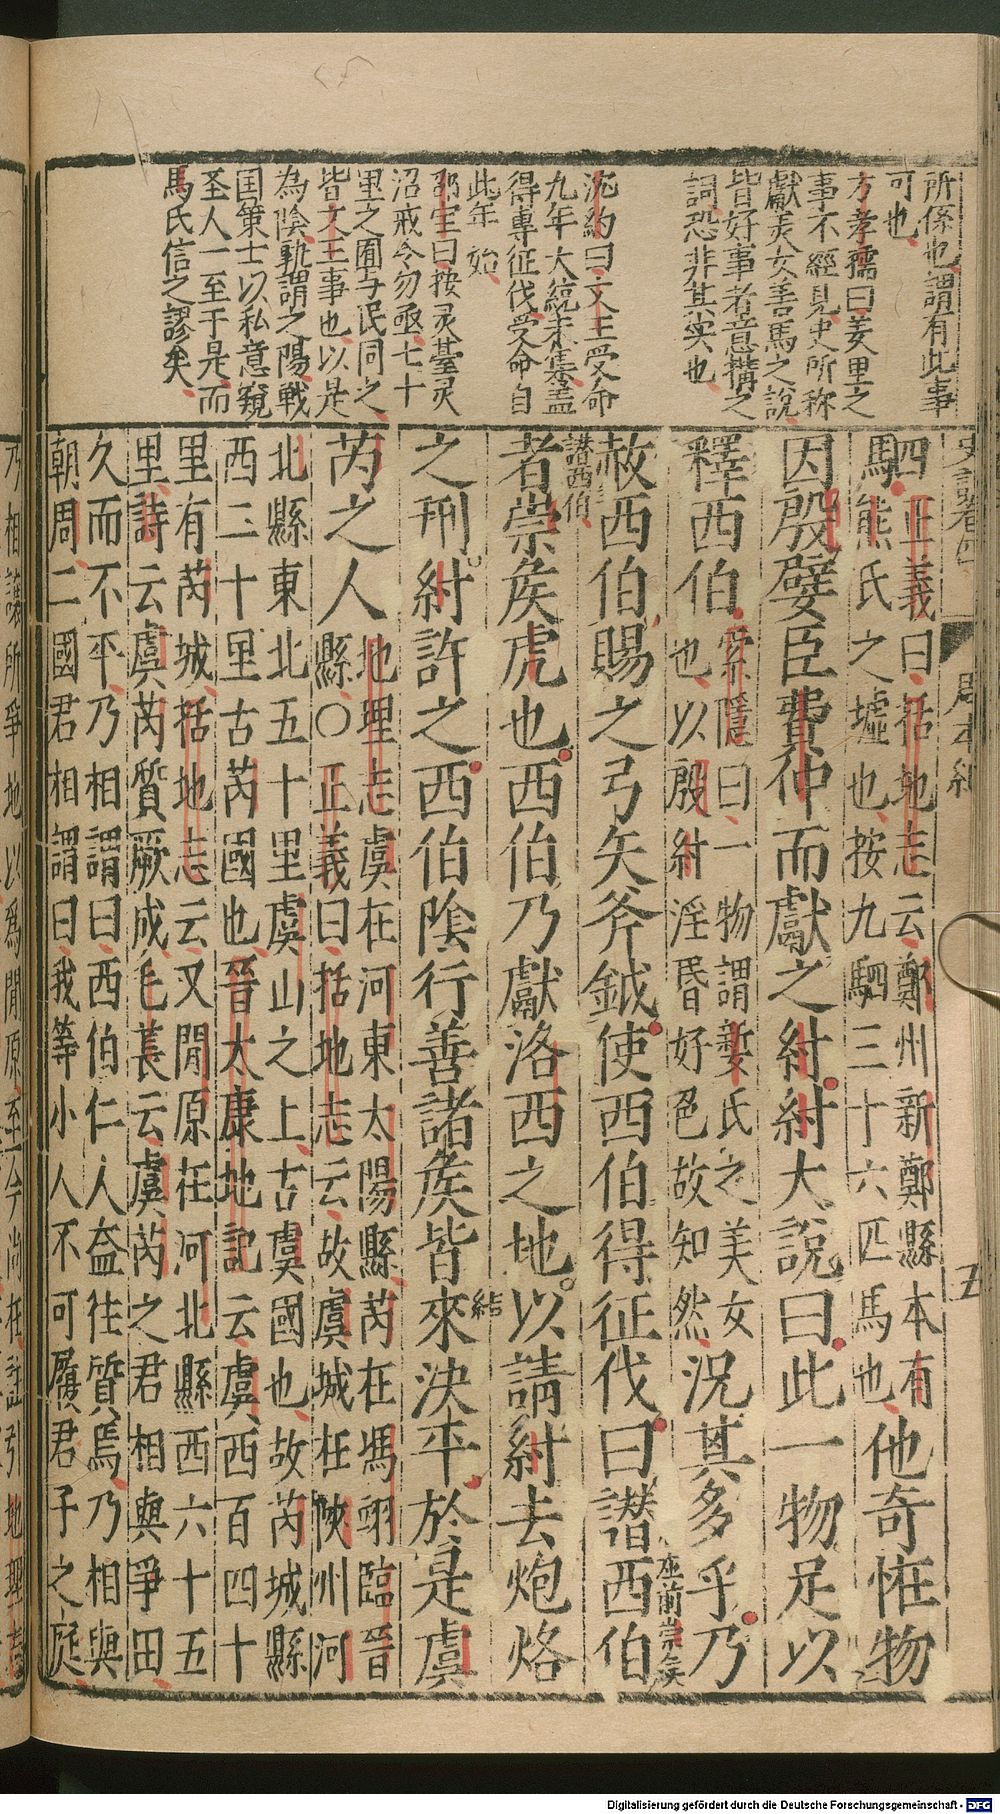 所係也謂有此事
可也
方孝孺曰羑里之
事不經見史所称
獻美女善馬之說
皆好事者意搆之
詞恐非其实也
沈約曰文王受命
九年大統未集盖
得專征伐受命自
此年始
邵宝曰按灵臺灵
沼戒令勿亟七十
里之囿与民同之
皆文王事也以是
為陰孰謂之陽戰
国策士以私意窺
圣人一至于是而
馬氏信之謬矣
史記卷四
周本紀
五
四正義曰括地志云鄭州新鄭縣本有
熊氏之墟也按九駟三十六匹馬也
他奇恠物
因殷嬖臣費仲而獻之紂紂大說曰此一物足以
釋西伯
索隱曰一物謂㜪氏之美女
也以殷紂淫昏好色故知然
況其多乎乃
赦西伯賜之弓矢斧鉞使西伯得征伐曰譖西伯
應前崇矦
譖西伯
者崇矦虎也西伯乃獻洛西之地以請紂去炮烙
之刑紂許之西伯陰行善諸矦皆來決平於是虞
結
芮之人
地理志虞在河東太陽縣芮在馮翊臨晉
縣〇正義曰括地志云故虞城在陝州河
北縣東北五十里虞山之上古虞國也故芮城縣
西二十里古芮國也晉太康地記云虞西百四十
里有芮城括地志云又閒原在河北縣西六十五
里詩云虞芮質厥成毛萇云虞芮之君相與爭田
久而不平乃相謂曰西伯仁人盍往質焉乃相與
朝周二國君相謂曰我等小人不可履君子之庭
乃相讓所爭地以爲閒原至今尚在註引地理志
Digitalisierung gefördert durch die Deutsche Forschungsgemeinschaft - DFG